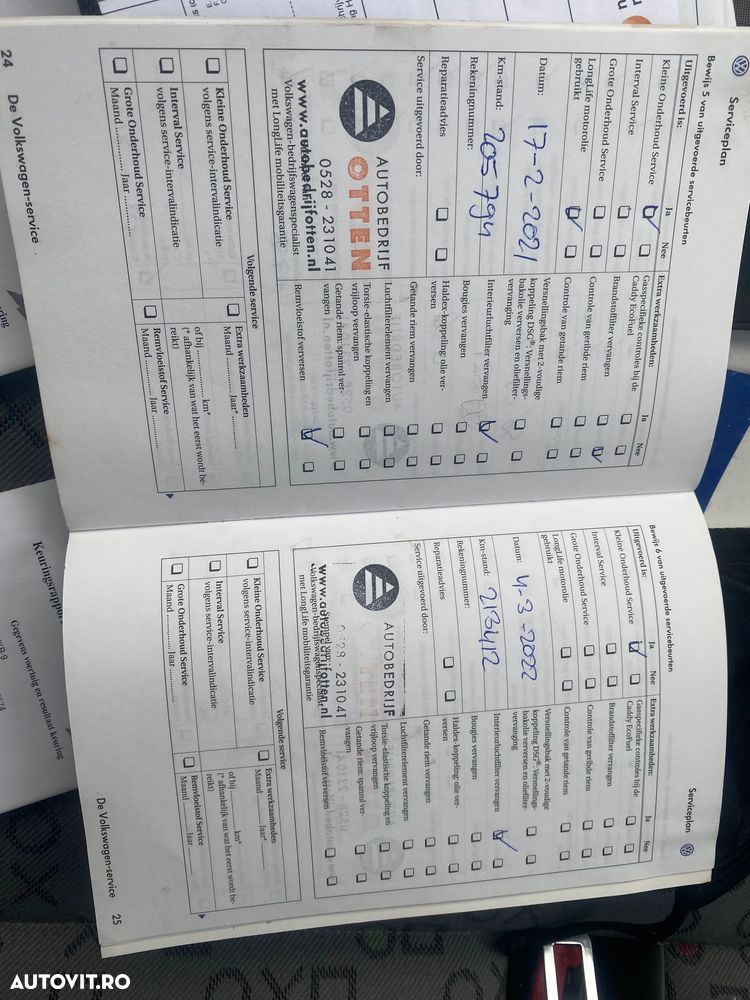 Serviceplan
Bewijs 5 van uitgevoerde servicebeurten
Uitgevoerd is:
Ja
Nee
Kleine Onderhoud Service
Interval Service
Grote Onderhoud Service
LongLife motorolie
gebruikt
Datum: 17-2-2021
Km-stand: 205794
Rekeningnummer:
Reparatieadvies
Service uitgevoerd door:
AUTOBEDRIJF
OTTEN
0528 - 23 10 41
www.autobedrijfotten.nl
Volkswagen-bedrijfswagenspecialist
met LongLife mobiliteitsgarantie
Extra werkzaamheden:
Ja
Nee
Gasspecifieke controles bij de
Caddy EcoFuel
Brandstoffilter vervangen
Controle van geribde riem
Controle van getande riem
Versnellingsbak met 2-voudige
koppeling DSG®: Versnellings-
bakolie verversen en oliefilter-
vervanging
Interieurluchtfilter vervangen
Bougies vervangen
Haldex-koppeling: olie ver-
versen
Getande riem vervangen
Luchtfilterelement vervangen
Torsie-elastische koppeling en
vrijloop vervangen
Getande riem: spanrol ver-
vangen
Remvloeistof verversen
Volgende service
Kleine Onderhoud Service
volgens service-intervalindicatie
Interval Service
volgens service-intervalindicatie
Grote Onderhoud Service
Maand ............... Jaar ...............
Extra werkzaamheden
Maand ............ Jaar* ............
of bij .................... km*
(* afhankelijk van wat het eerst wordt be-
reikt)
Remvloeistof Service
Maand ............ Jaar ............
24 De Volkswagen-service
Serviceplan
Bewijs 6 van uitgevoerde servicebeurten
Uitgevoerd is:
Ja
Nee
Kleine Onderhoud Service
Interval Service
Grote Onderhoud Service
LongLife motorolie
gebruikt
Datum: 4-3-2022
Km-stand: 213412
Rekeningnummer:
Reparatieadvies
Service uitgevoerd door:
AUTOBEDRIJF
- 23 10 41
www.autobedrijfotten.nl
Volkswagen-bedrijfswagenspecialist
met LongLife mobiliteitsgarantie
Extra werkzaamheden:
Ja
Nee
Gasspecifieke controles bij de
Caddy EcoFuel
Brandstoffilter vervangen
Controle van geribde riem
Controle van getande riem
Versnellingsbak met 2-voudige
koppeling DSG®: Versnellings-
bakolie verversen en oliefilter-
vervanging
Interieurluchtfilter vervangen
Bougies vervangen
Haldex-koppeling: olie ver-
versen
Getande riem vervangen
Luchtfilterelement vervangen
Torsie-elastische koppeling en
vrijloop vervangen
Getande riem: spanrol ver-
vangen
Remvloeistof verversen
Volgende service
Kleine Onderhoud Service
volgens service-intervalindicatie
Interval Service
volgens service-intervalindicatie
Grote Onderhoud Service
Maand ............... Jaar ...............
Extra werkzaamheden
Maand ............ Jaar* ............
of bij .................... km*
(* afhankelijk van wat het eerst wordt be-
reikt)
Remvloeistof Service
Maand ............ Jaar ............
De Volkswagen-service 25
Keuringsrapport
Gegevens voertuig en resultaat keuring
AUTOVIT.RO